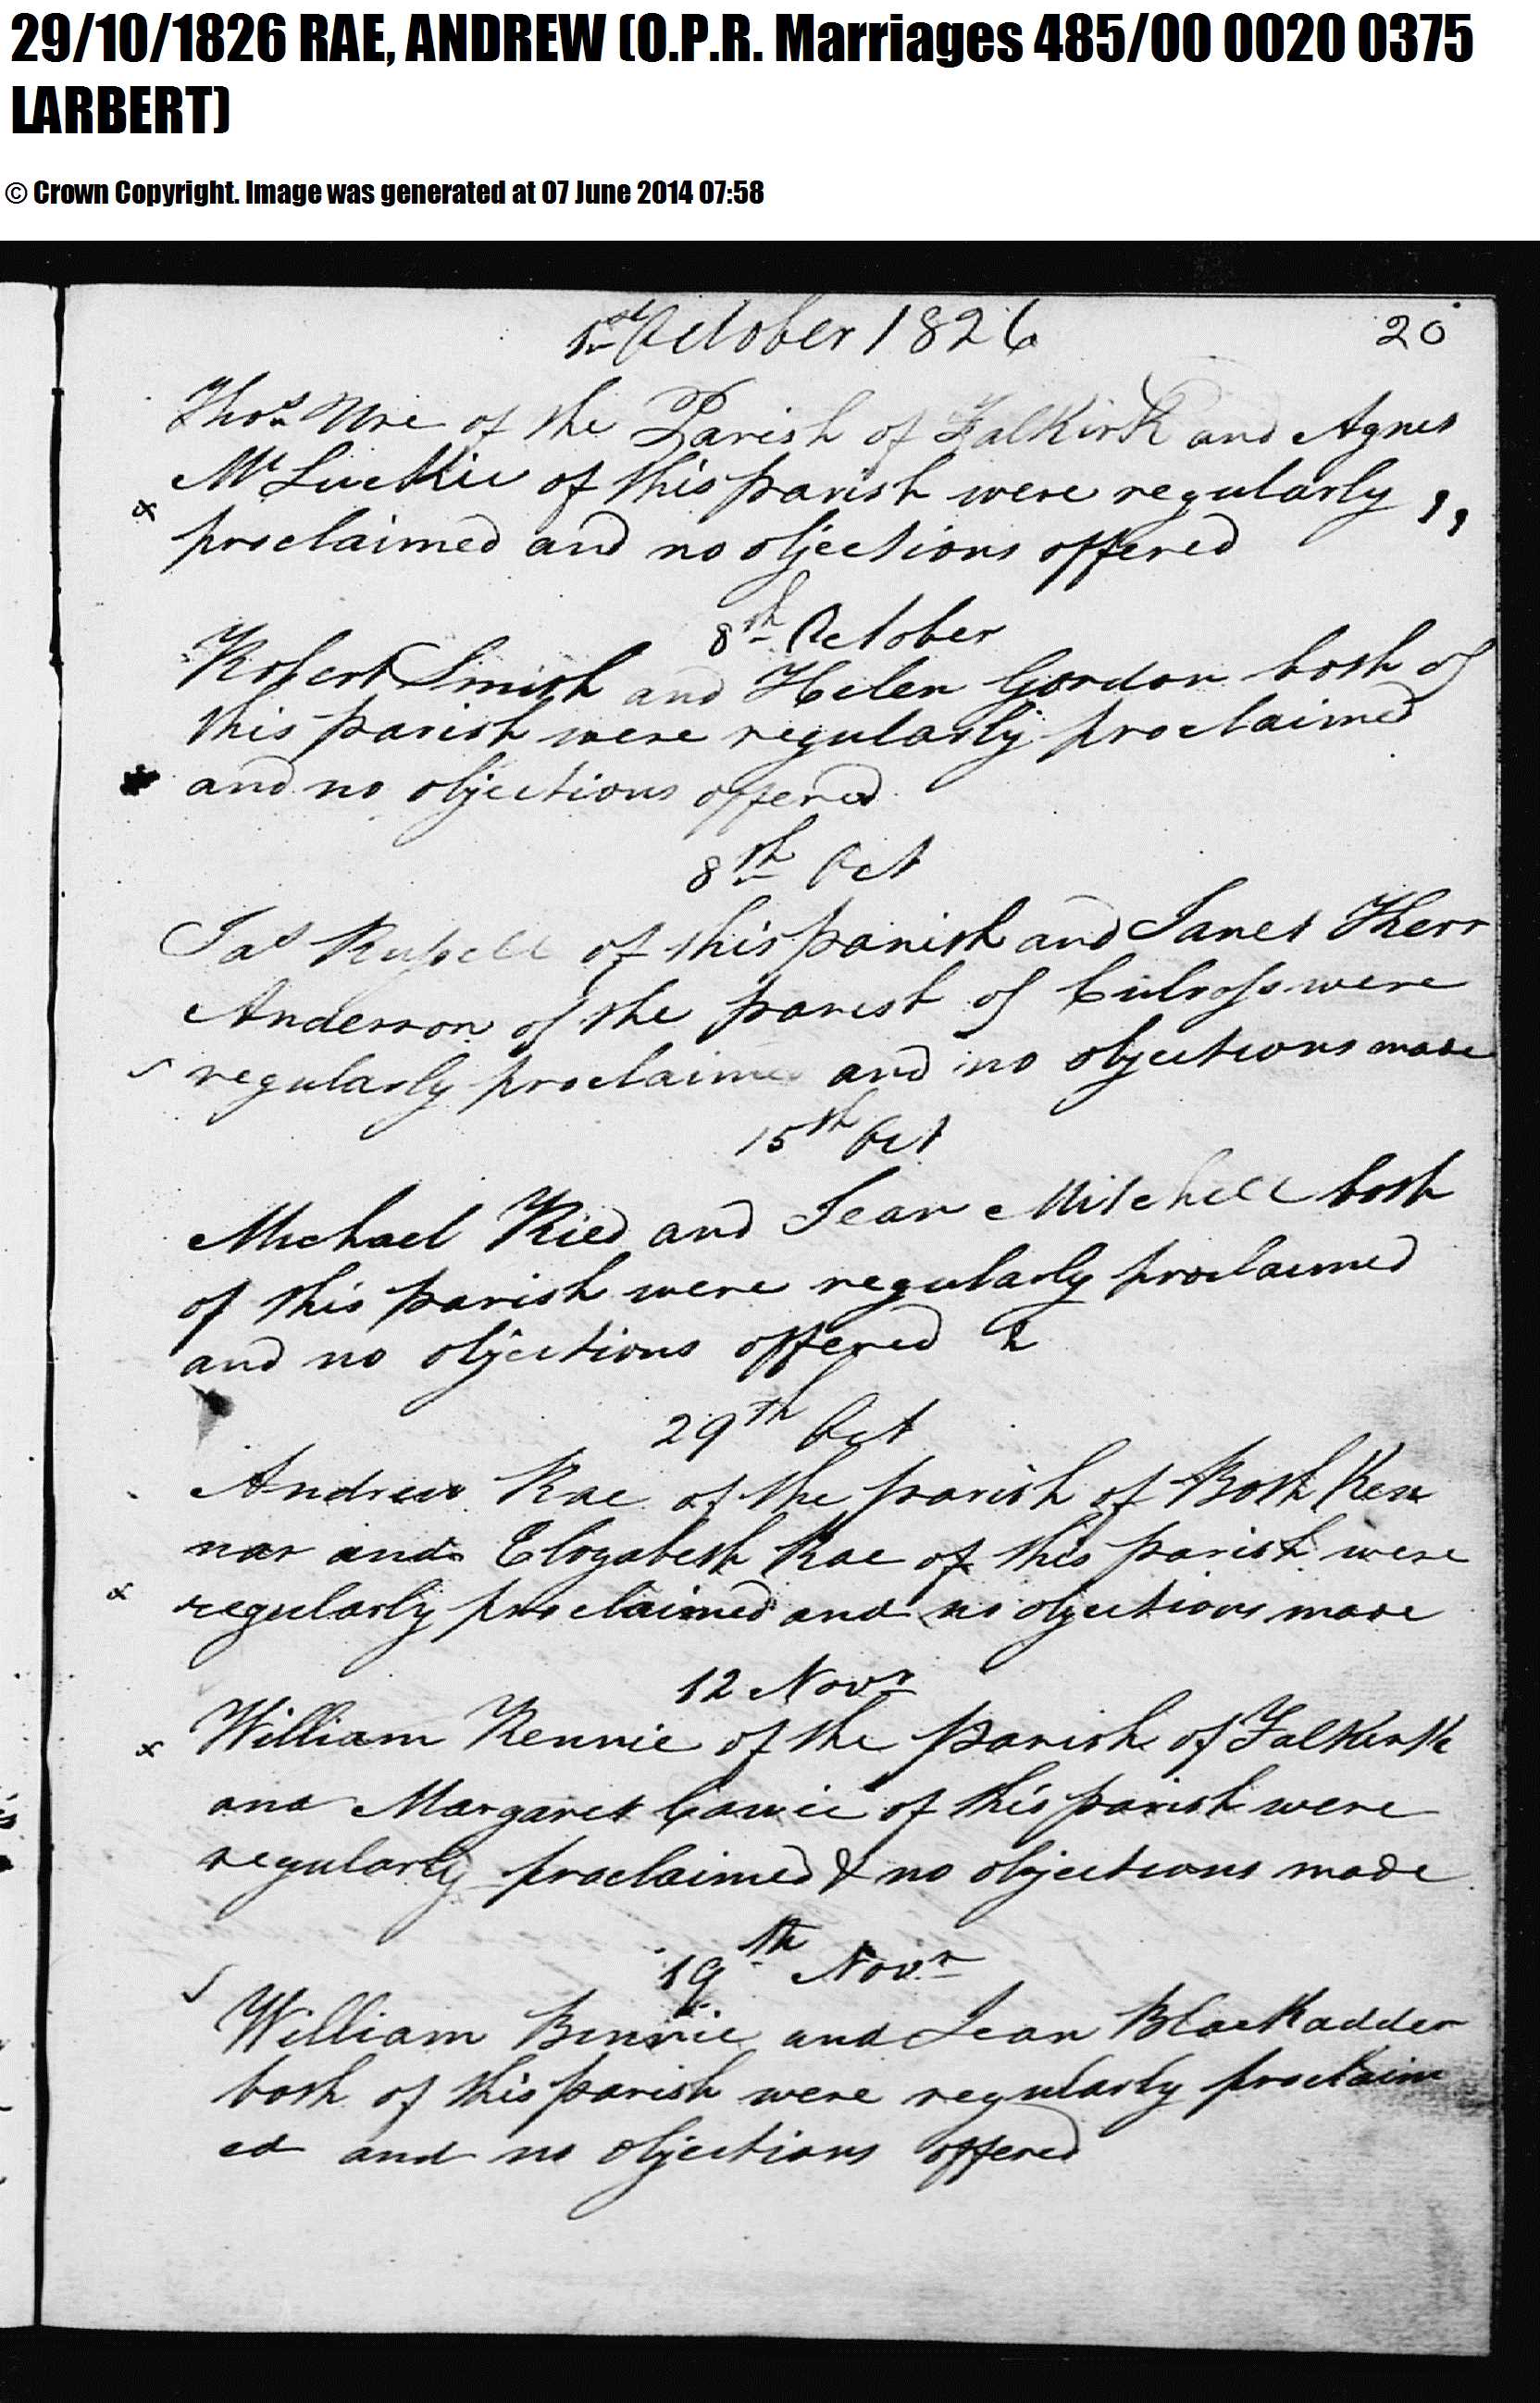 29/10/1826 RAE, ANDREW (O.P.R. Marriages 485/00 0020 0375
LARBERT)
© Crown Copyright. Image was generated at 07 June 2014 07:58
1st October 1826 20
Thos Ure of the Parish of Falkirk and Agnes
McLuckie of this parish were regularly
proclaimed and no objections offered
8th October
Robert Smith and Helen Gordon both of
this parish were regularly proclaimed
and no objections offered
8th Oct
Jas Russell of this parish and Janet Kerr
Anderson of the parish of Culross were
regularly proclaimed and no objections made
15th Oct
Michael Ried and Jean Mitchell both
of this parish were regularly proclaimed
and no objections offered
29th Oct
Andrew Rae of the parish of Both Ken
nar and Elizabeth Rae of this parish were
regularly proclaimed and no objections made
12 Novr
William Rennie of the parish of Falkirk
and Margaret Cowie of this parish were
regularly proclaimed & no objections made
19th Novr
William Binnie and Jean Blackadder
both of this parish were regularly proclaim
ed and no objections offered